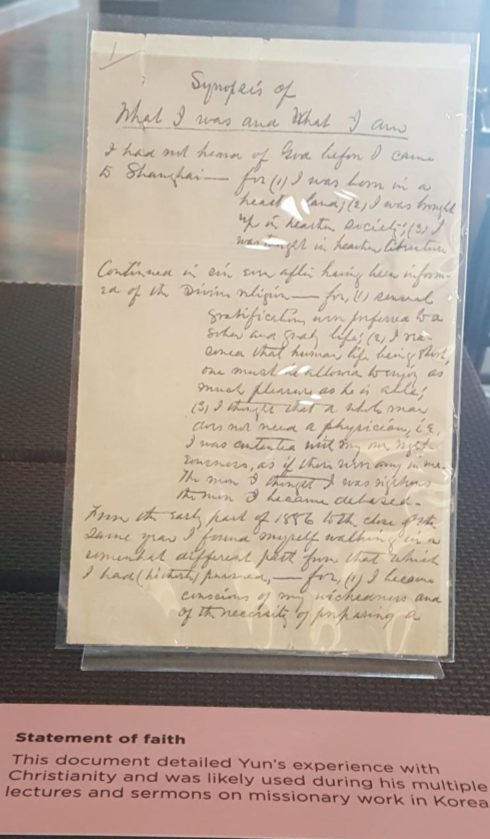 1
Synopsis of
What I was and What I am
I had not heard of God before I came
to Shanghai — for (1) I was born in a
heathen land; (2) I was brought
up in heathen society; (3) I
was taught in heathen literature
Continued in sin even after being inform-
ed of the Divine religion — for, (1) sensual
gratifications were preferred to a
sober and godly life; (2) I rea-
soned that human life being short,
one must be allowed to enjoy as
much pleasure as he is able;
(3) I thought that a whole man
does not need a physician, i.e.
I was contented with my own right-
eousness, as if there were any in me.
The more I thought I was righteous
the more I became debased.
From the early part of 1886 to the close of the
same year I found myself walking in a
somewhat different path from that which
I had (hitherto) pursued, — for, (1) I became
conscious of my wickedness and
of the necessity of preparing a
Statement of faith
This document detailed Yun's experience with
Christianity and was likely used during his multiple
lectures and sermons on missionary work in Korea